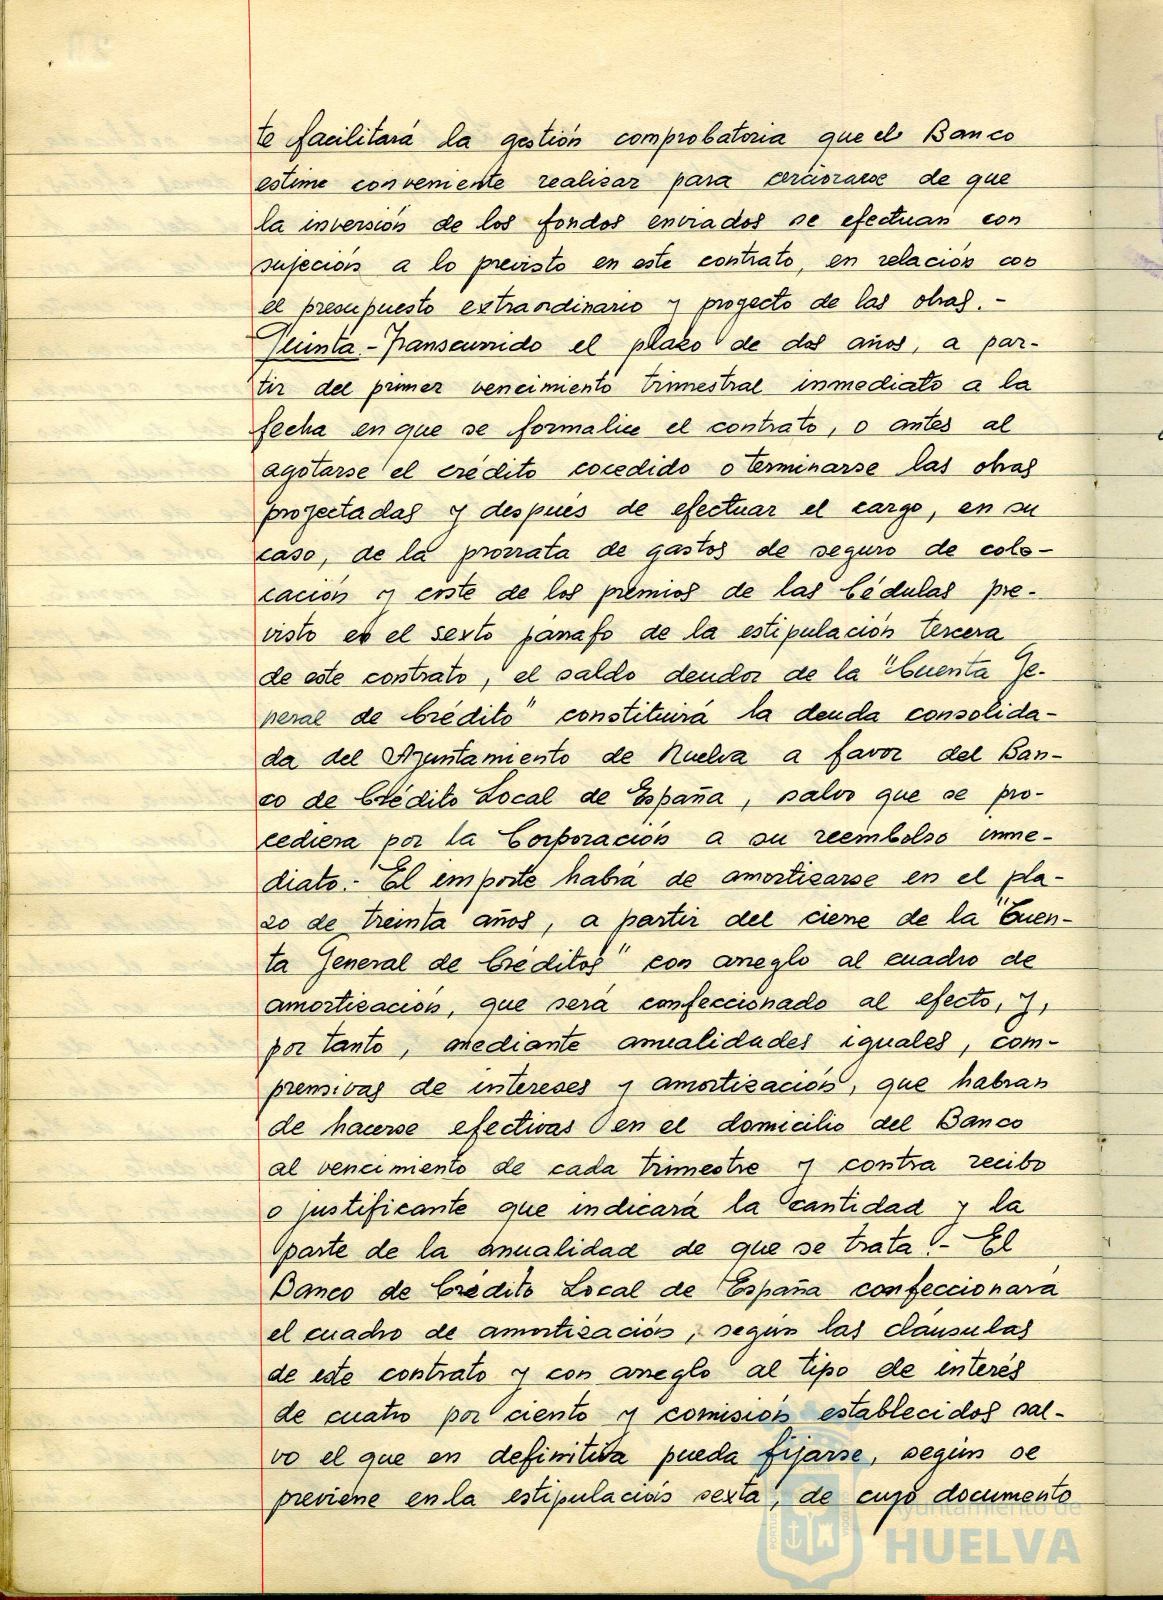 te facilitará la gestión comprobatoria que el Banco
estime conveniente realizar para cerciorarse de que
la inversión de los fondos enviados se efectuan con
sujeción a lo previsto en este contrato, en relación con
el presupuesto extraordinario y proyecto de las obras.-
Quinta.- Transcurrido el plazo de dos años, a par-
tir del primer vencimiento trimestral inmediato a la
fecha en que se formalice el contrato, o antes al
agotarse el crédito cocedido o terminarse las obras
proyectadas y después de efectuar el cargo, en su
caso, de la prorrata de gastos de seguro de colo-
cación y coste de los premios de las Cédulas pre-
visto en el sexto párrafo de la estipulación tercera
de este contrato, el saldo deudor de la "Cuenta Ge-
neral de Crédito" constituirá la deuda consolida-
da del Ayuntamiento de Huelva a favor del Ban-
co de Crédito Local de España, salvo que se pro-
cediera por la Corporación a su reembolso inme-
diato.- El importe habrá de amortizarse en el pla-
zo de treinta años, a partir del cierre de la "Cuen-
ta General de Créditos" con arreglo al cuadro de
amortización, que será confeccionado al efecto, y,
por tanto, mediante anualidades iguales, com-
prensivas de intereses y amortización, que habran
de hacerse efectivas en el domicilio del Banco
al vencimiento de cada trimestre y contra recibo
o justificante que indicará la cantidad y la
parte de la anualidad de que se trata.- El
Banco de Crédito Local de España confeccionará
el cuadro de amortización, según las cláusulas
de este contrato y con arreglo al tipo de interés
de cuatro por ciento y comisión establecidos sal-
vo el que en definitiva pueda fijarse, según se
previene en la estipulación sexta, de cuyo documento
Ayuntamiento de
HUELVA